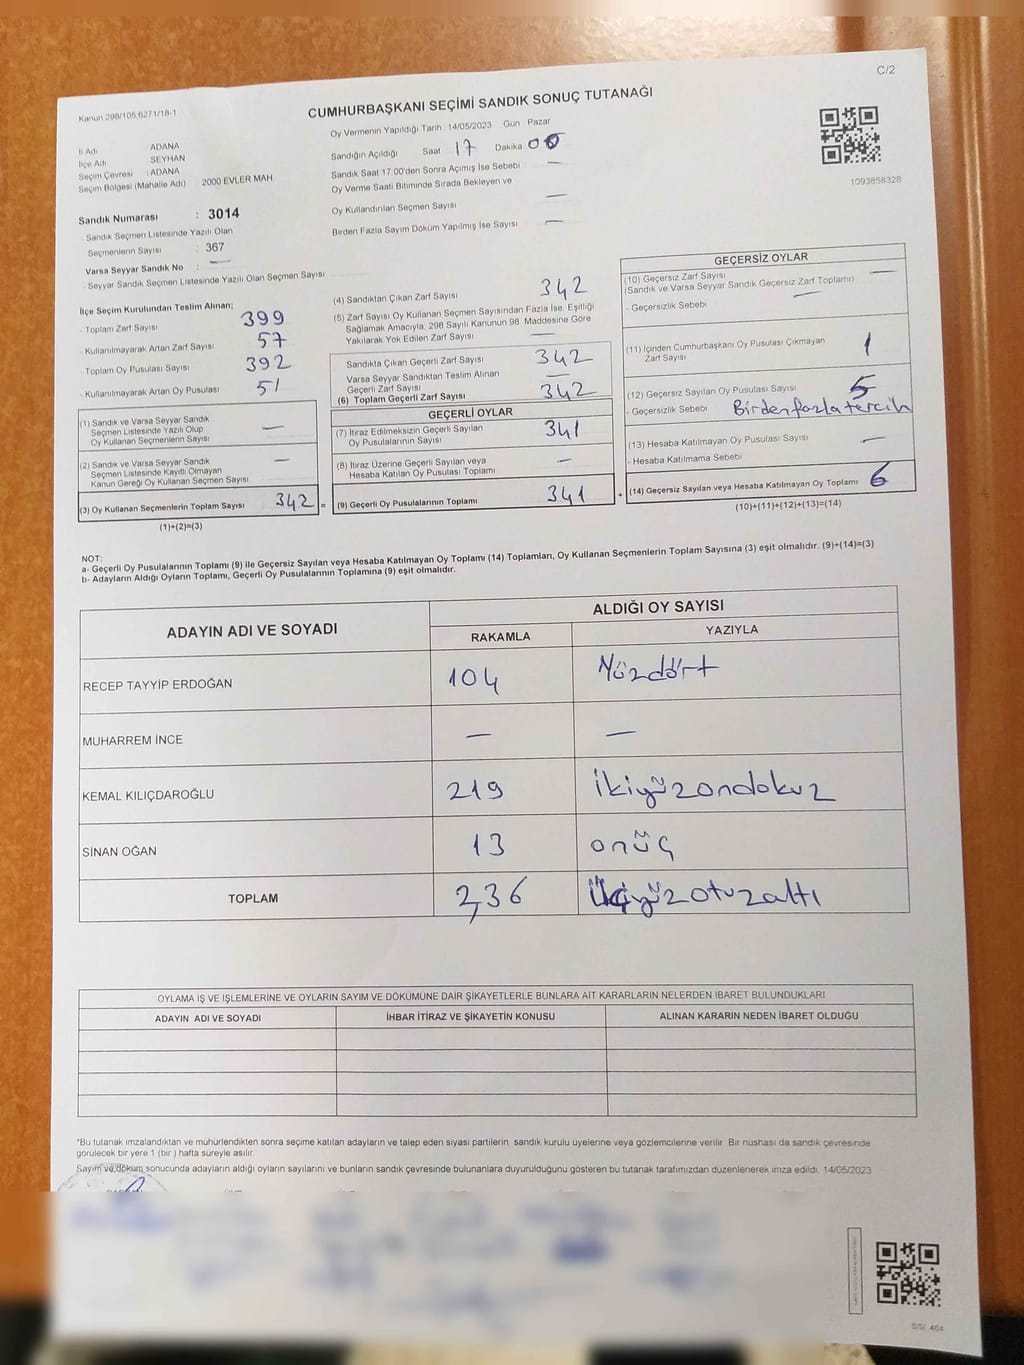 C/2
Kanun 298/105,6271/18-1
CUMHURBAŞKANI SEÇİMİ SANDIK SONUÇ TUTANAĞI
Oy Vermenin Yapıldığı Tarih 14/05/2023 Gün Pazar
İl Adı ADANA
İlçe Adı SEYHAN
Seçim Çevresi : ADANA
Seçim Bölgesi (Mahalle Adı) 2000 EVLER MAH
Sandığın Açıldığı Saat 17 Dakika 00
Sandık Saat 17:00'den Sonra Açımış İse Sebebi —
Oy Verme Saati Bitiminde Sırada Bekleyen ve
Oy Kullandırılan Seçmen Sayısı —
Birden Fazla Sayım Döküm Yapılmış İse Sayısı —
1093858328
Sandık Numarası : 3014
- Sandık Seçmen Listesinde Yazılı Olan
Seçmenlerin Sayısı : 367
Varsa Seyyar Sandık No : —
- Seyyar Sandık Seçmen Listesinde Yazılı Olan Seçmen Sayısı
İlçe Seçim Kurulundan Teslim Alınan;
- Toplam Zarf Sayısı 399
- Kullanılmayarak Artan Zarf Sayısı 57
- Toplam Oy Pusulası Sayısı 392
- Kullanılmayarak Artan Oy Pusulası 51
(1) Sandık ve Varsa Seyyar Sandık
Seçmen Listesinde Yazılı Olup
Oy Kullanan Seçmenlerin Sayısı —
(2) Sandık ve Varsa Seyyar Sandık
Seçmen Listesinde Kayıtlı Olmayan
Kanun Gereği Oy Kullanan Seçmen Sayısı —
(3) Oy Kullanan Seçmenlerin Toplam Sayısı 342 =
(1)+(2)=(3)
(4) Sandıktan Çıkan Zarf Sayısı 342
(5) Zarf Sayısı Oy Kullanan Seçmen Sayısından Fazla İse, Eşitliği
Sağlamak Amacıyla, 298 Sayılı Kanunun 98. Maddesine Göre
Yakılarak Yok Edilen Zarf Sayısı —
Sandıkta Çıkan Geçerli Zarf Sayısı 342
Varsa Seyyar Sandıktan Teslim Alınan
Geçerli Zarf Sayısı —
(6) Toplam Geçerli Zarf Sayısı 342
GEÇERLİ OYLAR
(7) İtiraz Edilmeksizin Geçerli Sayılan
Oy Pusulalarının Sayısı 341
(8) İtiraz Üzerine Geçerli Sayılan veya
Hesaba Katılan Oy Pusulası Toplamı —
(9) Geçerli Oy Pusulalarının Toplamı 341 +
GEÇERSİZ OYLAR
(10) Geçersiz Zarf Sayısı —
(Sandık ve Varsa Seyyar Sandık Geçersiz Zarf Toplamı)
- Geçersizlik Sebebi —
(11) İçinden Cumhurbaşkanı Oy Pusulası Çıkmayan
Zarf Sayısı 1
(12) Geçersiz Sayılan Oy Pusulası Sayısı 5
- Geçersizlik Sebebi Birden fazla tercih
(13) Hesaba Katılmayan Oy Pusulası Sayısı —
- Hesaba Katılmama Sebebi
(14) Geçersiz Sayılan veya Hesaba Katılmayan Oy Toplamı 6
(10)+(11)+(12)+(13)=(14)
NOT:
a- Geçerli Oy Pusulalarının Toplamı (9) ile Geçersiz Sayılan veya Hesaba Katılmayan Oy Toplamı (14) Toplamları, Oy Kullanan Seçmenlerin Toplam Sayısına (3) eşit olmalıdır. (9)+(14)=(3)
b- Adayların Aldığı Oyların Toplamı, Geçerli Oy Pusulalarının Toplamına (9) eşit olmalıdır.
ADAYIN ADI VE SOYADI ALDIĞI OY SAYISI
RAKAMLA YAZIYLA
RECEP TAYYİP ERDOĞAN 104 Yüzdört
MUHARREM İNCE — —
KEMAL KILIÇDAROĞLU 219 ikiyüzondokuz
SİNAN OĞAN 13 onüç
TOPLAM 236 üçyüzotuzaltı
OYLAMA İŞ VE İŞLEMLERİNE VE OYLARIN SAYIM VE DÖKÜMÜNE DAİR ŞİKAYETLERLE BUNLARA AİT KARARLARIN NELERDEN İBARET BULUNDUKLARI
ADAYIN ADI VE SOYADI İHBAR İTİRAZ VE ŞİKAYETİN KONUSU ALINAN KARARIN NEDEN İBARET OLDUĞU
*Bu tutanak imzalandıktan ve mühürlendikten sonra seçime katılan adayların ve talep eden siyasi partilerin sandık kurulu üyelerine veya gözlemcilerine verilir. Bir nüshası da sandık çevresinde
görülecek bir yere 1 (bir ) hafta süreyle asılır.
Sayım ve döküm sonucunda adayların aldığı oyların sayılarını ve bunların sandık çevresinde bulunanlara duyurulduğunu gösteren bu tutanak tarafımızdan düzenlenerek imza edildi. 14/05/2023